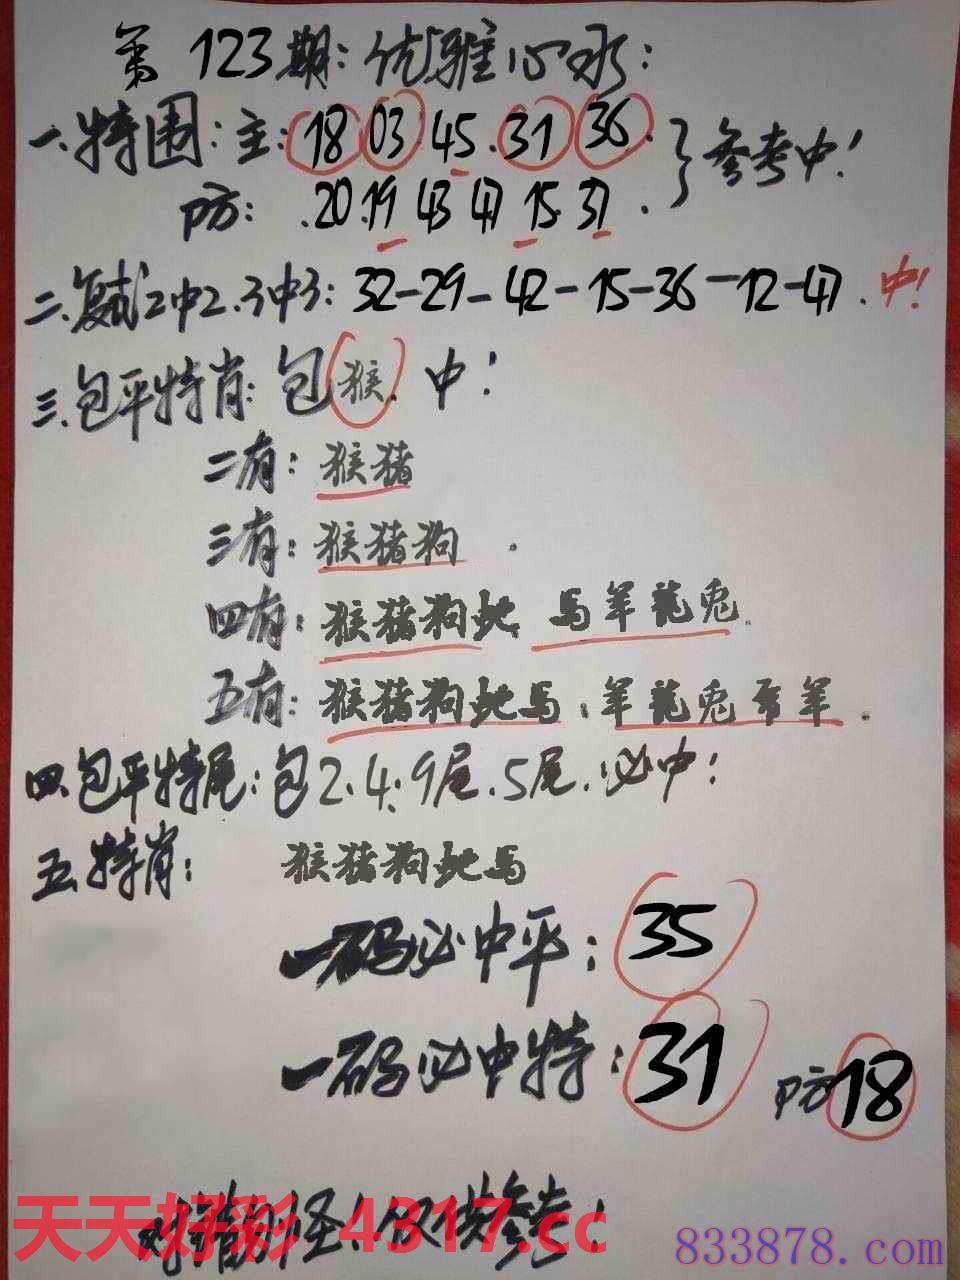 第123期：优雅心水：
一.特围：主：18 03 45.31 36. }参考中！
防：.20.19 43 47 15.37.
二.复试2中2.3中3：32-29-42-15-36-12-47.中！
三.包平特肖：包猴.中！
二有：猴猪
三有：猴猪狗.
四有：猴猪狗蛇.马羊龙兔.
五有：猴猪狗蛇马：羊龙兔 羊.
四.包平特尾：包2.4.9尾.5尾.必中！
五.特肖：猴猪狗蛇马
一码必中平：35
一码必中特：31 防18
对错别怪！仅供参考！
天天好彩 4317.cc
833878.com